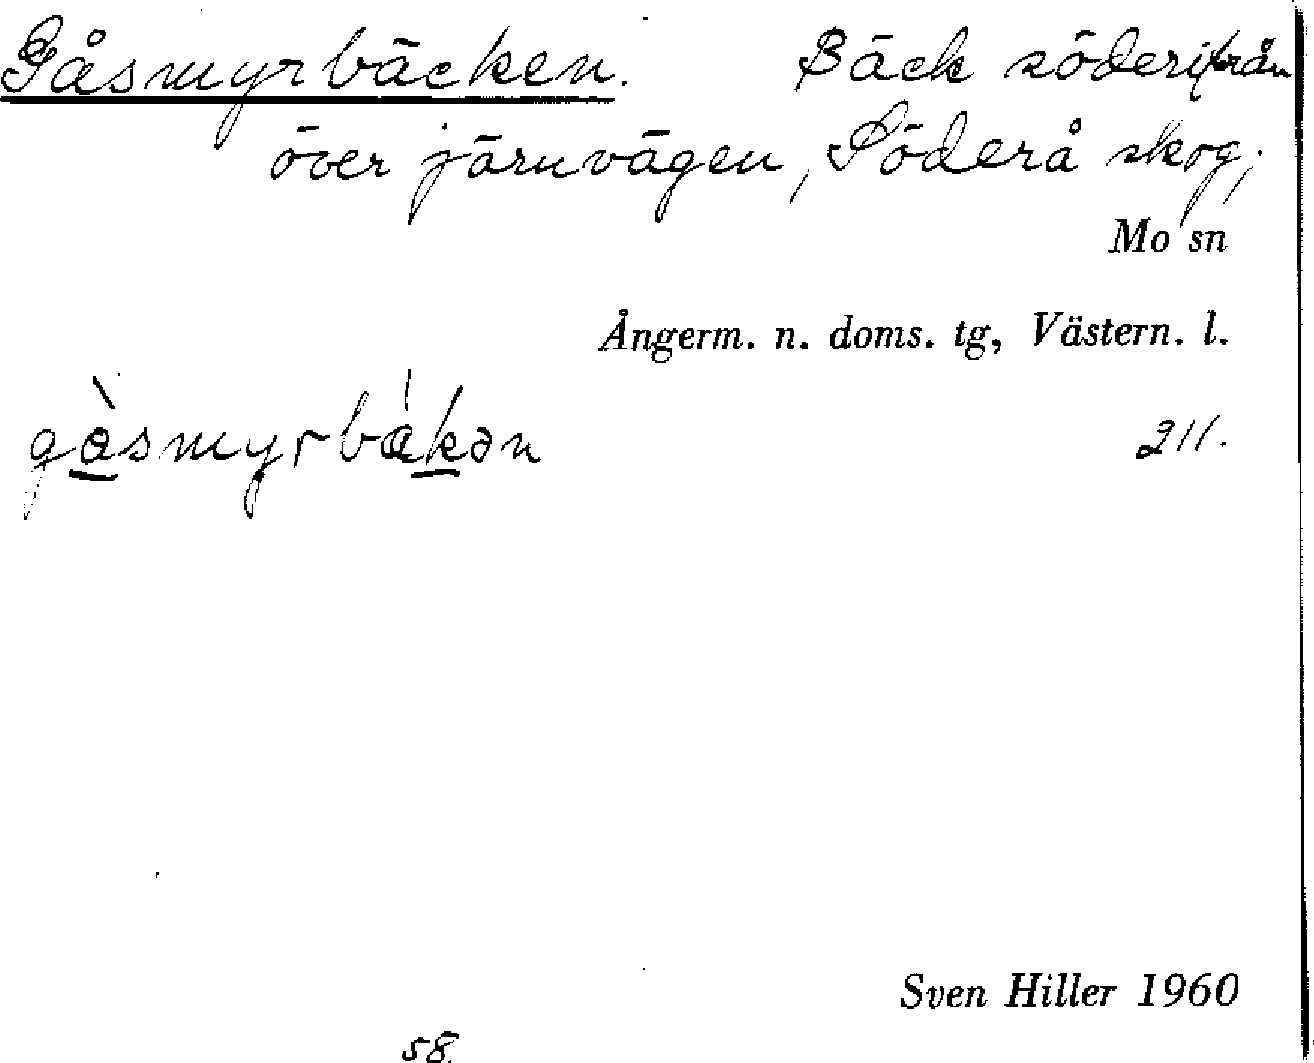 Gåsmyrbäcken. Bäck söderifrån
över järnvägen, Söderå skog,
Mo sn
Ångerm. n. doms. tg, Västern. l.
gàsmyrbákən 211.
Sven Hiller 1960
58.